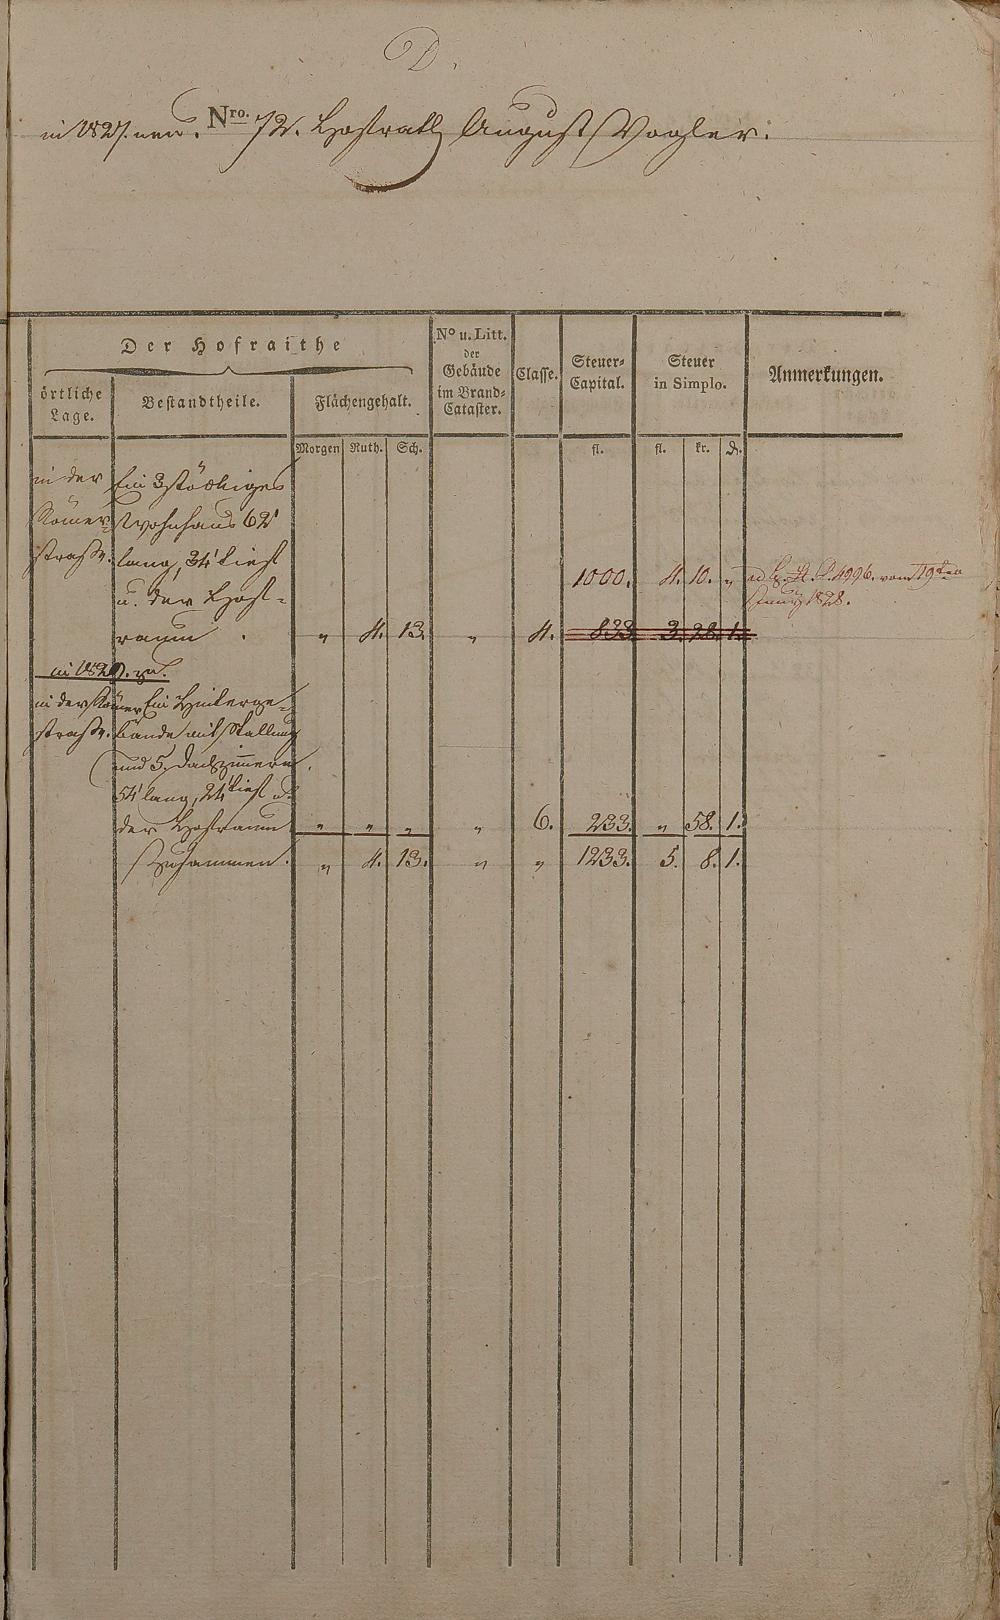 D.
in 1827. neu. Nro. 72. Hofrath August Vogler.
Der Hofraithe
No u. Litt. der Gebäude im Brand-Cataster.
Classe.
Steuer-Capital.
Steuer in Simplo.
Anmerkungen.
örtliche Lage.
Bestandtheile.
Flächengehalt.
Morgen Ruth. Sch. fl. fl. kr. d.
in der Ein 3 stöckiges
Römer- Wohnhaus 62'
straße. lang, 34' tief 1000. 4. 10. „ vom 19ten
u. der Hof- 1828.
raum . „ 4. 13. „ 4. 833. 3. 28. 1.
in 1829. zu.
in der Römer Ein Hinterge-
straße. bäude mit Stallung
und 5. Dachzimmern.
54' lang, 24' tief u.
der Hofraum „ „ „ „ 6. 233. „ 58. 1.
Zusammen. „ 4. 13. „ „ 1233. 5. 8. 1.